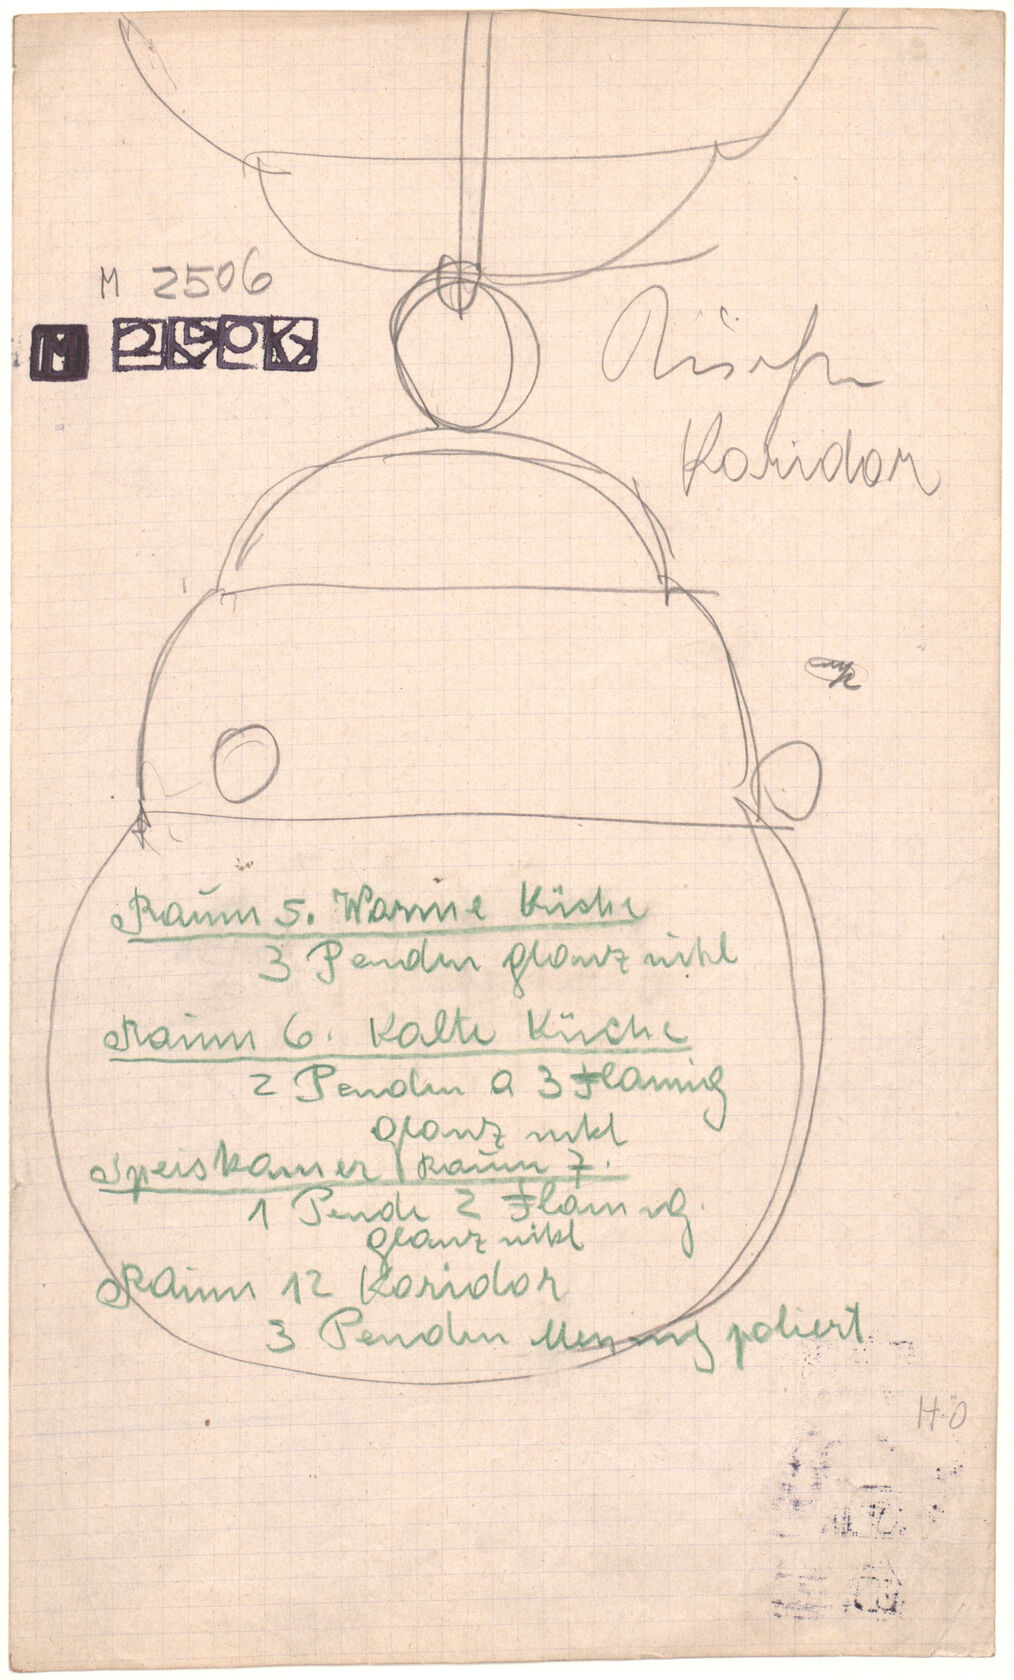 M 2506
M 2506
Koridor
Raum 5. Warme Küche
3 Pendln glanz nikl
Raum 6. Kalte Küche
2 Pendln a 3 Flamig
glanz nikl
Speiskamer Raum 7.
1 Pendl 2 Flamig.
glanz nikl
Raum 12 Koridor
3 Pendln Messing poliert
H.O